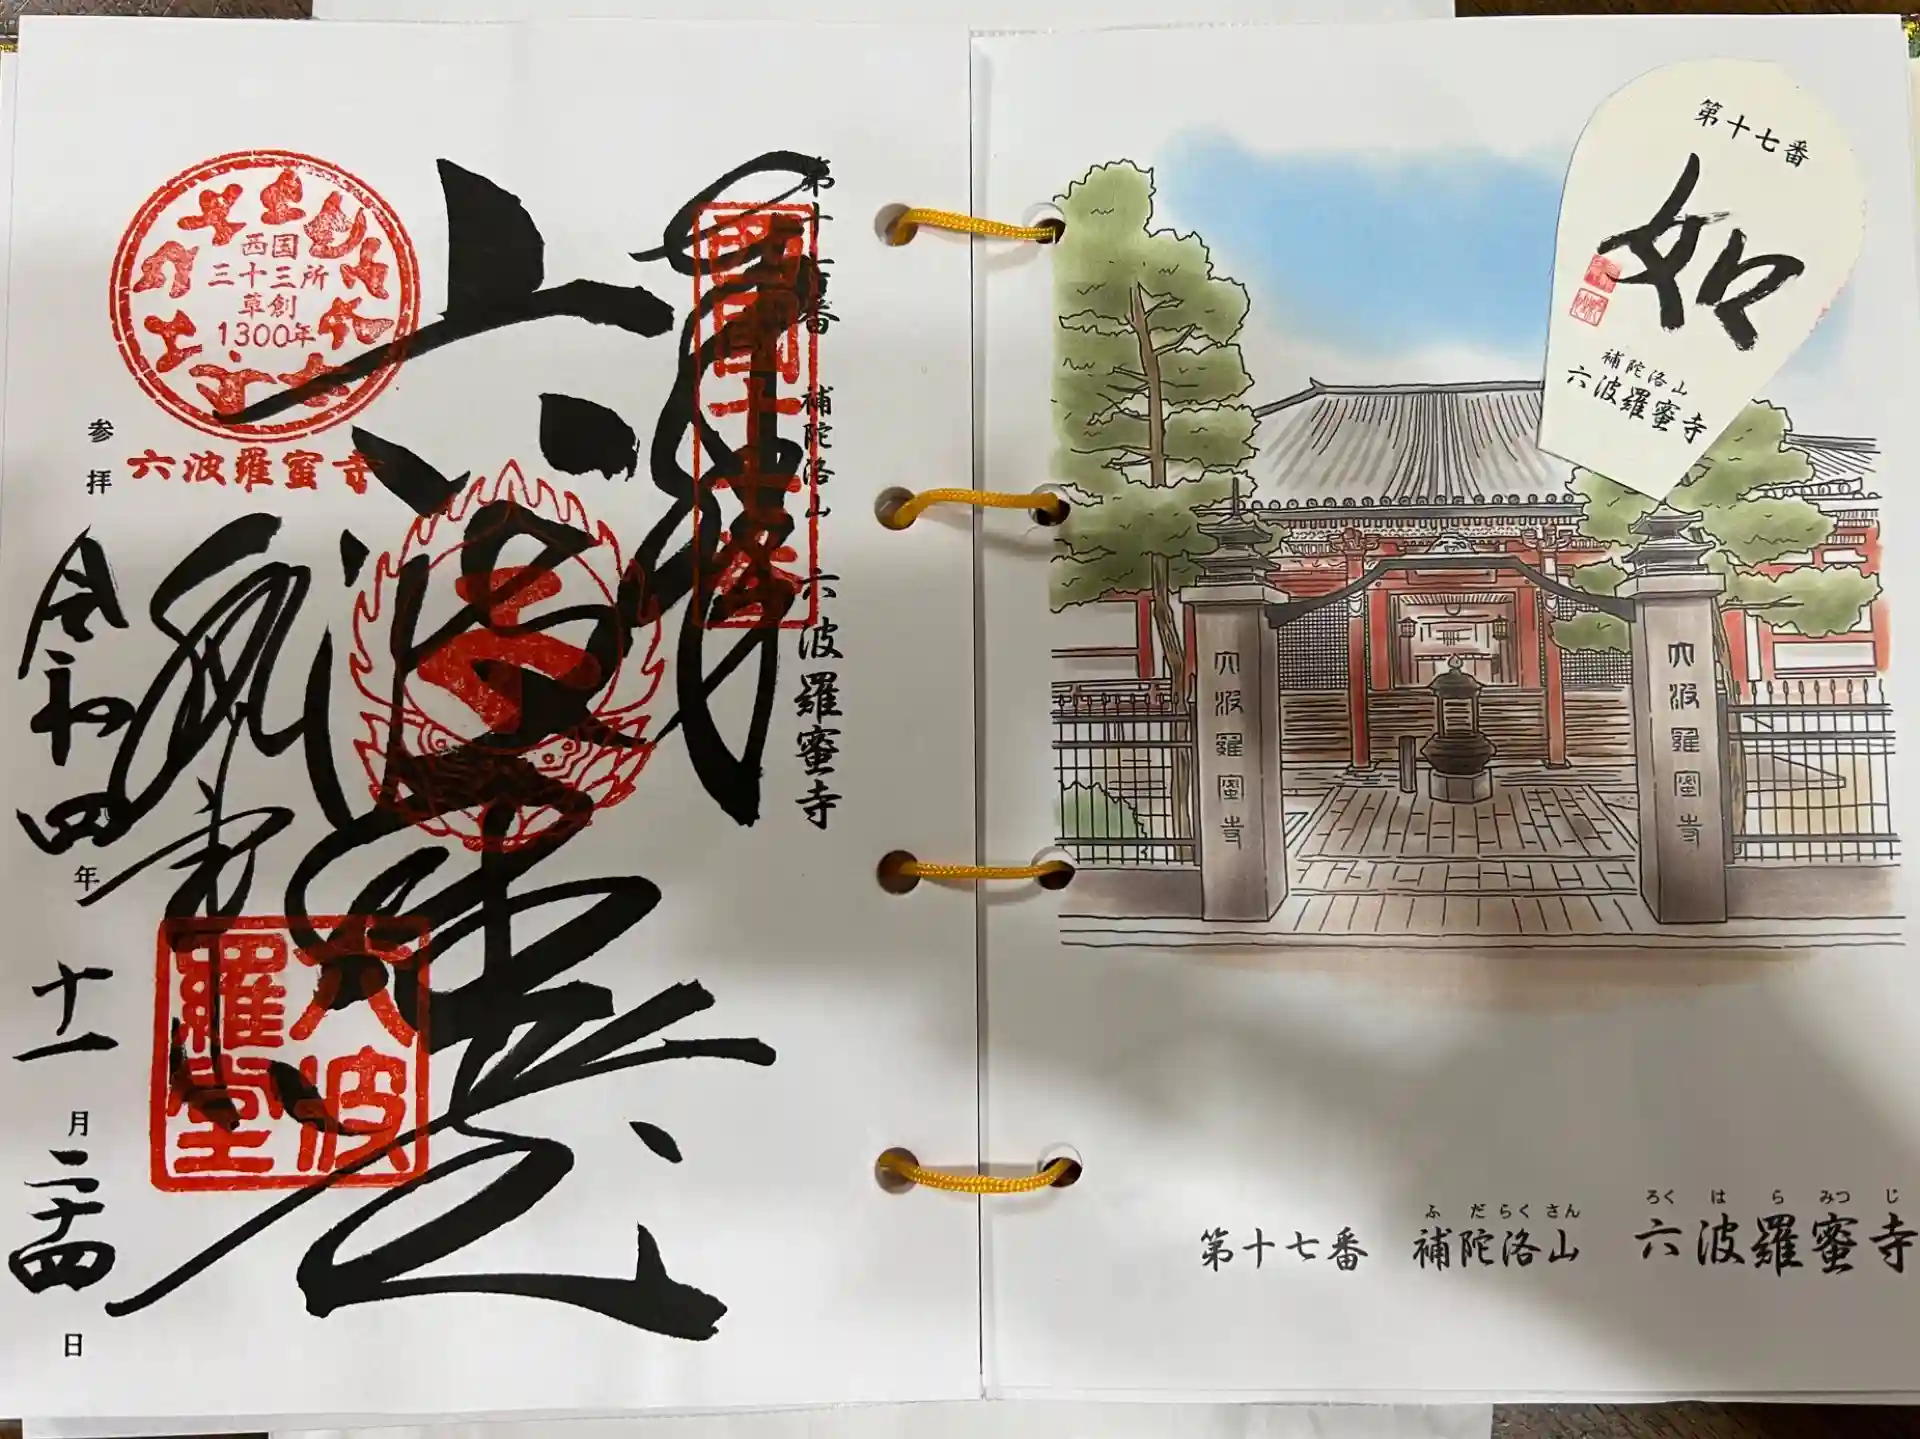 第十七番 補陀洛山 六波羅蜜寺
西国十七番
奉拝
六波羅蜜寺
西国
三十三所
草創
1300年
六波羅蜜寺
参拝
令和四年十一月二十四日
六波羅堂
第十七番
如
補陀洛山
六波羅蜜寺
六波羅蜜寺
六波羅蜜寺
ふだらくさん ろくはらみつじ
第十七番 補陀洛山 六波羅蜜寺